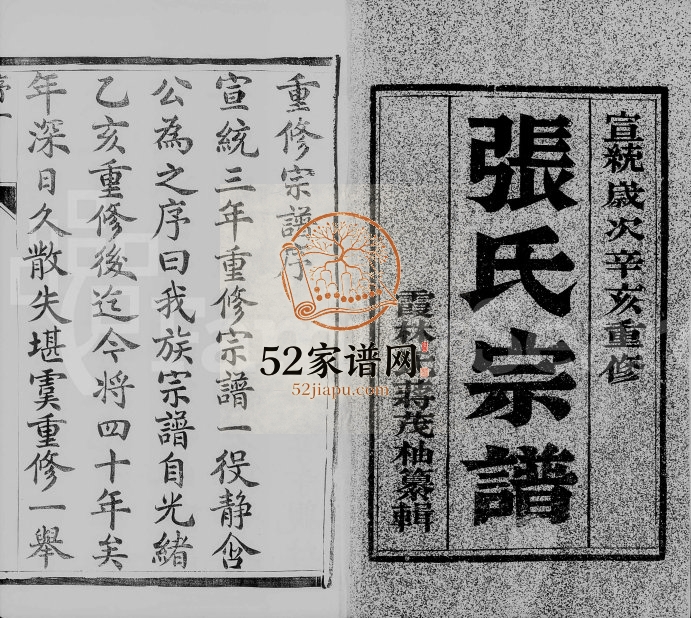 宣統歲次辛亥重修
張氏宗譜
霞林
蔣茂柚纂輯
重修宗譜序
宣統三年重修宗譜一役静舍
公為之序曰我族宗譜自光緒
乙亥重修後迄今將四十年矣
年深日久散失堪虞重修一舉
52家谱网
52jiapu.com